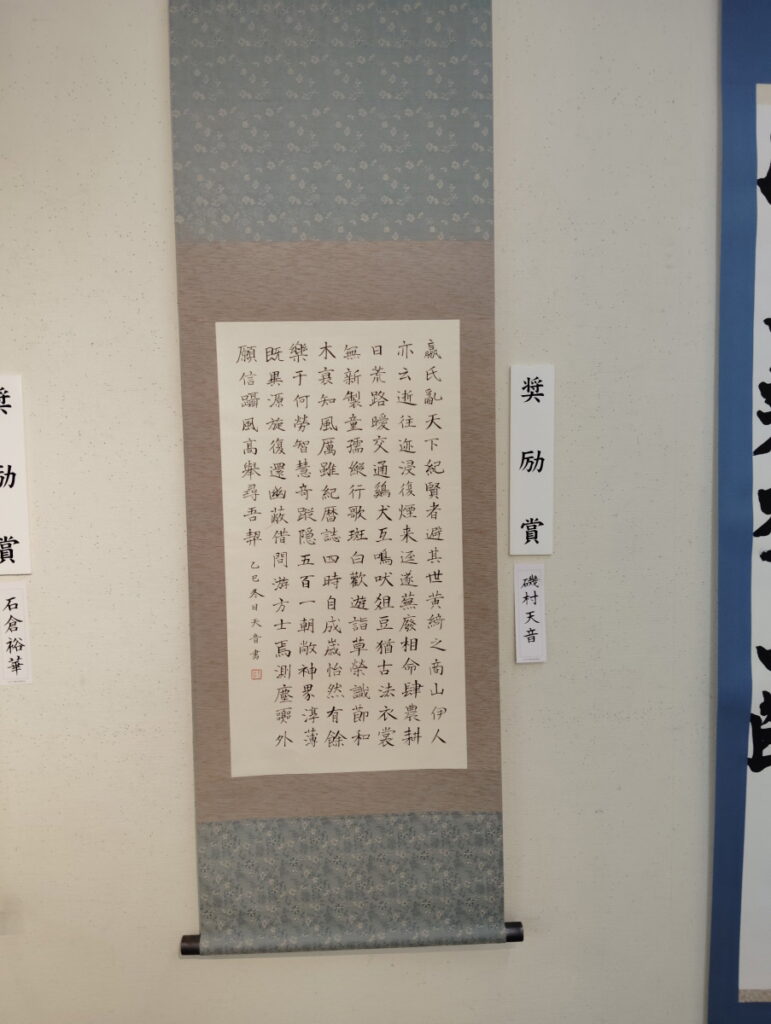 嬴氏亂天下紀賢者避其世黄綺之商山伊人
亦云逝往迹浸復煙来逕遂蕪廢相命肆農耕
日荒路曖交通鷄犬互鳴吠俎豆猶古法衣裳
無新製童孺縦行歌斑白歡遊詣草榮識節和
木衰知風厲雖紀暦誌四時自成歳怡然有餘
樂于何勞智慧奇蹤隠五百一朝敞神界淳薄
既異源旋復還幽蔽借問游方士焉測塵囂外
願信躡風高舉尋吾契 乙巳春日天音書
奨励賞
磯村天音
奨励賞
石倉裕華